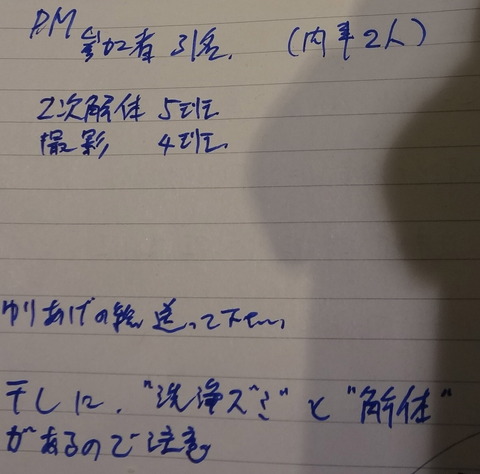 PM
参加者 31名. (内 2人)
2次解体 5班
撮影 4班.
ゆりあげの絵 送って下さい
干しに、"洗浄ズミ"と"解体"
があるので注意